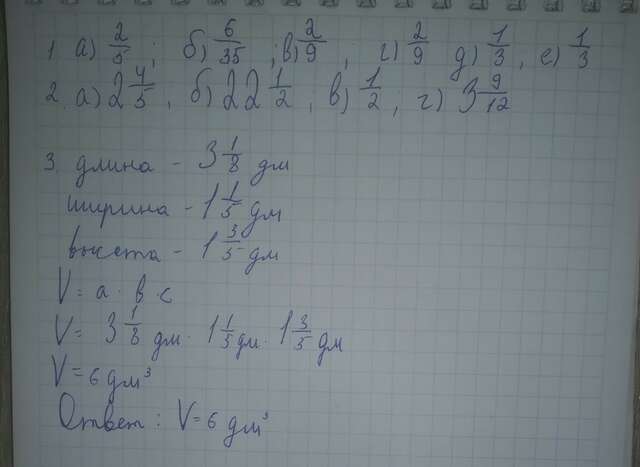 1. а) 2/5; б) 6/35; в) 2/9; г) 2/9 д) 1/3, е) 1/3
2. а) 2 4/5, б) 22 1/2, в) 1/2, г) 3 9/12
3. длина - 3 1/8 дм
ширина - 1 1/5 дм
высота - 1 3/5 дм
V = а · в · с
V = 3 1/8 дм · 1 1/5 дм · 1 3/5 дм
V = 6 дм³
Ответ: V = 6 дм³